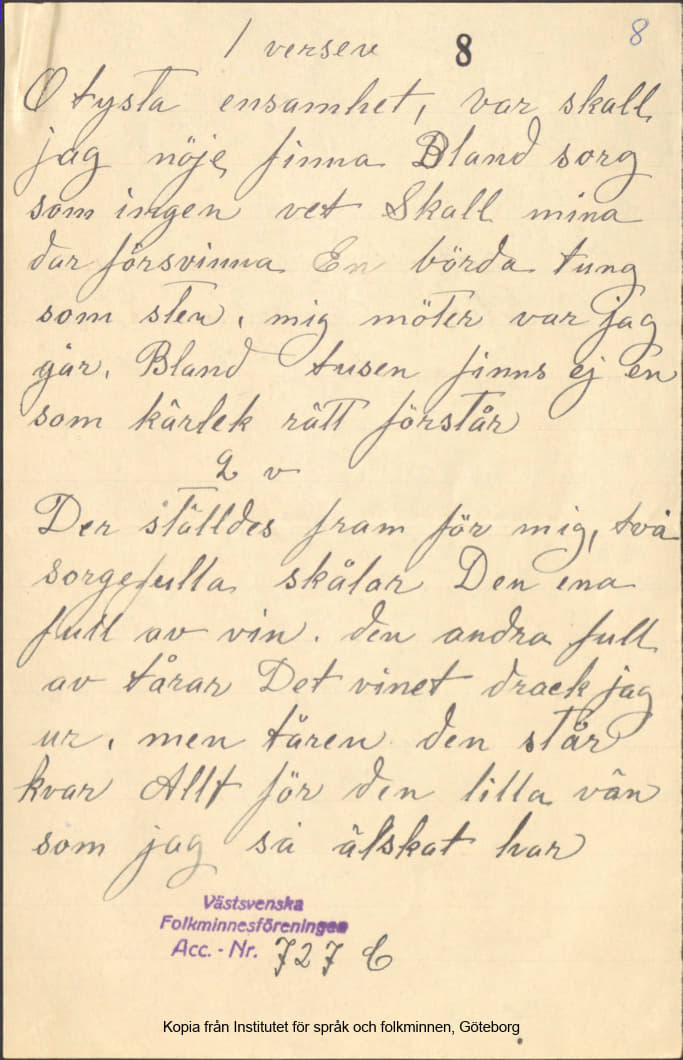 1 versen 8 8
O tysta ensamhet, var skall
jag nöje finna Bland sorg
som ingen vet Skall mina
dar försvinna En börda tung
som sten, mig möter var jag
går. Bland tusen finns ej en
som kärlek rätt förstår
2 v
Der ställdes fram för mig, två
sorgefulla skålar Den ena
full av vin. den andra full
av tårar Det vinet drack jag
ur, men tåren den står
kvar Allt för den lilla vän
som jag så älskat har
Västsvenska
Folkminnesföreningen
Acc. - Nr. 727 C
Kopia från Institutet för språk och folkminnen, Göteborg